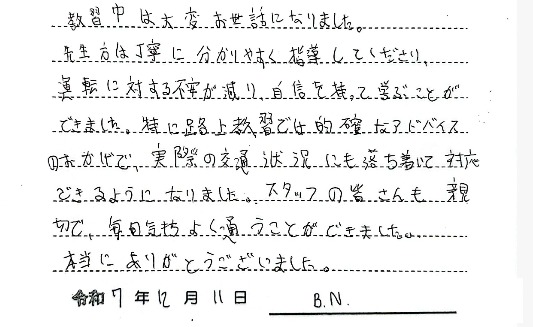 教習中は大変お世話になりました。
先生方は丁寧に分かりやすく指導してくださり、
運転に対する不安が減り、自信を持って学ぶことが
できました。特に路上教習では的確なアドバイス
のおかげで、実際の交通状況にも落ち着いて対応
できるようになりました。スタッフの皆さんも親
切で、毎日気持ちよく通うことができました。
本当にありがとうございました。
令和7年12月11日 B.N.